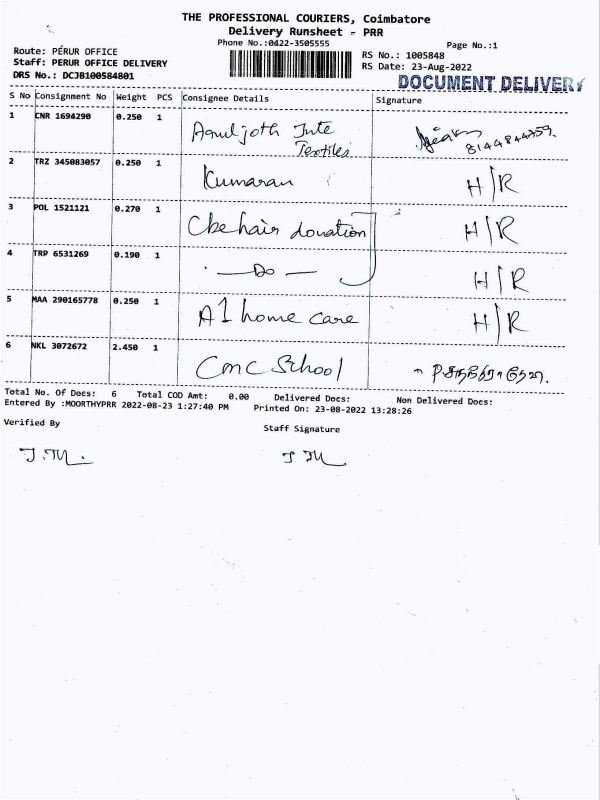 THE PROFESSIONAL COURIERS, Coimbatore
Delivery Runsheet - PRR
Phone No.:0422-3505555
Page No.:1
Route: PERUR OFFICE
Staff: PERUR OFFICE DELIVERY
DRS No.: DCJB100584801
RS No.: 1005848
RS Date: 23-Aug-2022
DOCUMENT DELIVERY
S No Consignment No Weight PCS Consignee Details Signature
1 CNR 1694290 0.250 1 Inte Textiles
2 TRZ 345083057 0.250 1 Kumaran H/R
3 POL 1521121 0.270 1 Cbe hair donation H/R
4 TRP 6531269 0.190 1 -Do- H/R
5 MAA 290165778 0.250 1 A1 home care H/R
6 NKL 3072672 2.450 1 CMC School
Total No. Of Docs: 6 Total COD Amt: 0.00 Delivered Docs: Non Delivered Docs:
Entered By :MOORTHYPRR 2022-08-23 1:27:40 PM Printed On: 23-08-2022 13:28:26
Verified By
Staff Signature